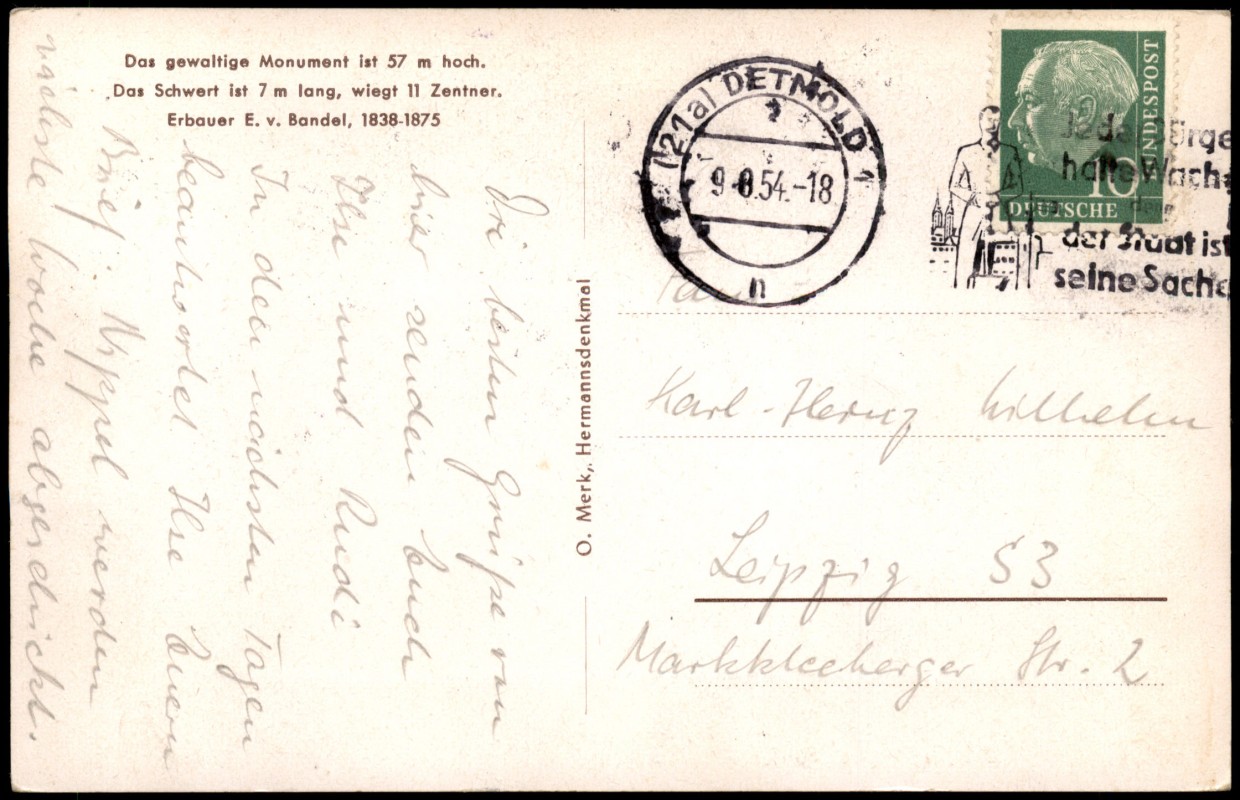 Das gewaltige Monument ist 57 m hoch.
Das Schwert ist 7 m lang, wiegt 11 Zentner.
Erbauer E. v. Bandel, 1838-1875
Die besten Grüße von
hier senden Euch
Ilse und Rudi
In den nächsten Tagen
beantwortet Ilse Euern
Brief. Äppel werden
nächste Woche abgeschickt.
O. Merk, Hermannsdenkmal
(21a) DETMOLD 1
9.8.54.-18
n
Jede Bürge
halte Wach
denn
der Staat ist
seine Sache
10
DEUTSCHE
BUNDESPOST
Fam.
Karl-Heinz Wilhelm
Leipzig S3
Markkleeberger Str. 2